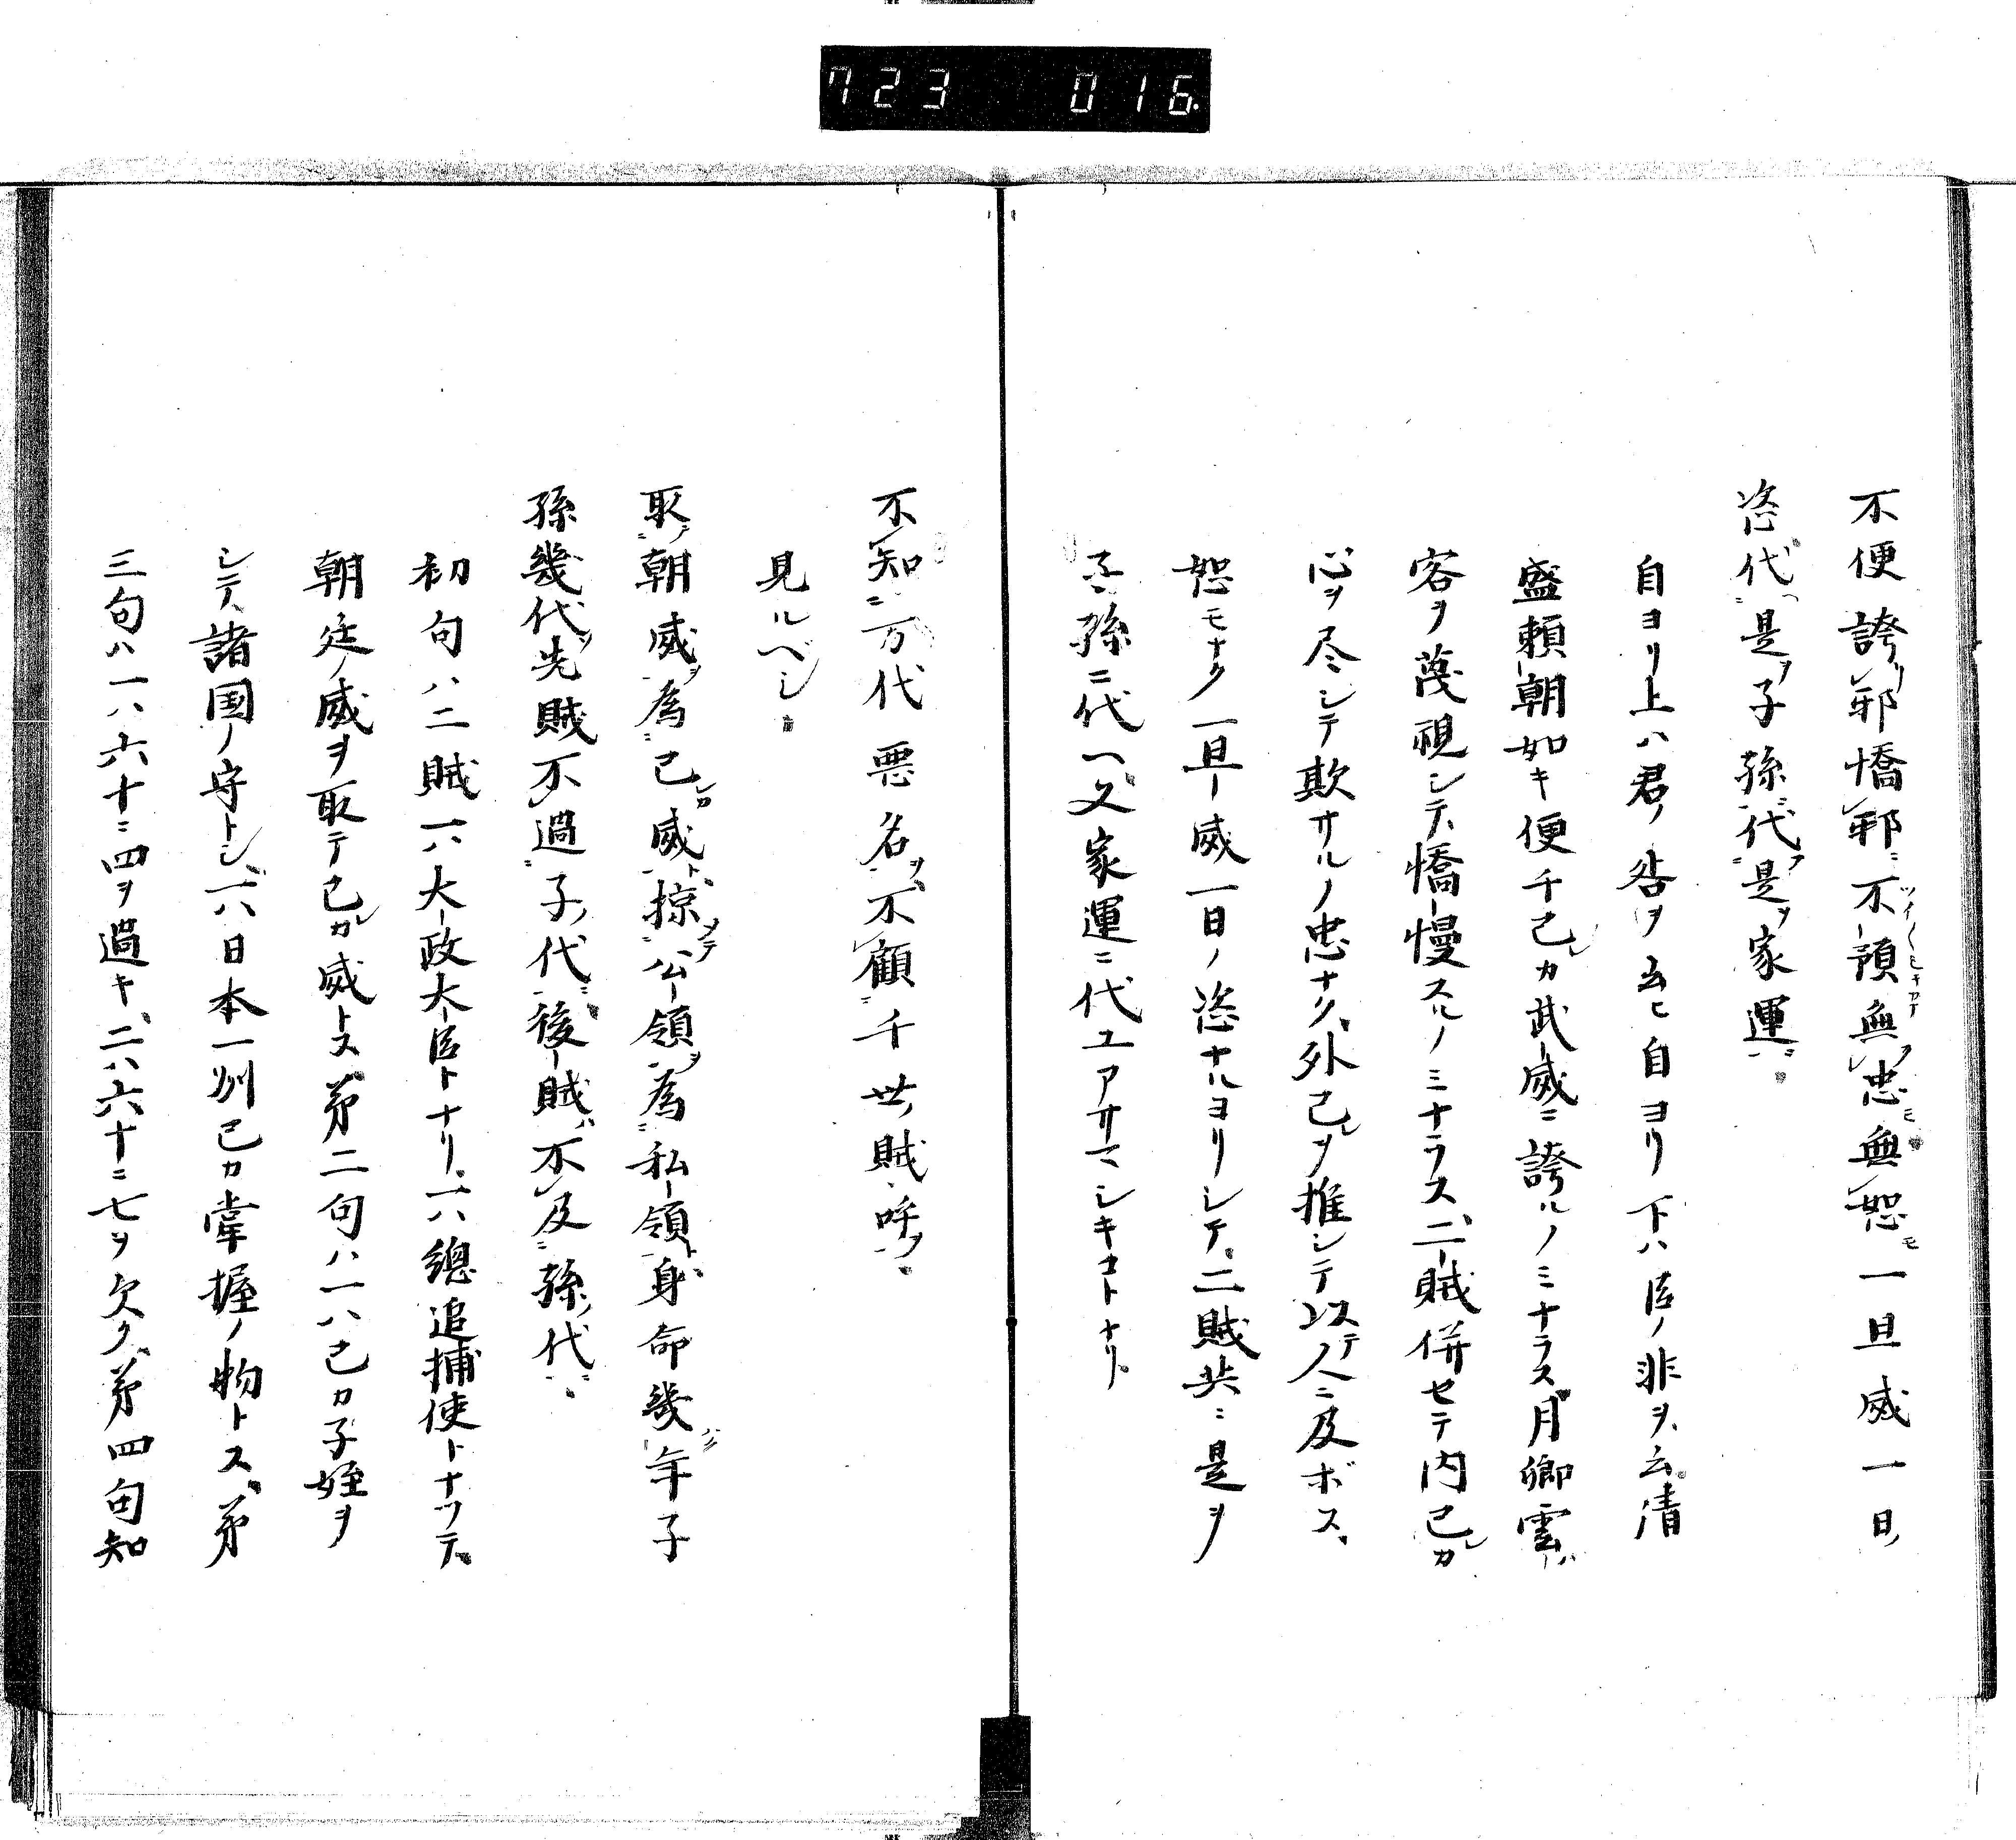 723 016
不便誇リ邪憍邪ニ不預無忠モ無恕モ一旦威一日ノ
恣代ヘ是ヲ子孫ニ代フ是ヲ家運ニ
自ヨリ上ハ君ノ咎ヲ云ヒ自ヨリ下ハ臣ノ非ヲ云清
盛頼朝如キ便チ己レカ武威ニ誇ルノミナラス月卿雲
客ヲ蔑視シテ憍慢スルノミナラス二賊併セテ内己レカ
心ヲ尽シテ欺サルノ忠ナク外己レヲ推シテ以テ人ニ及ボス
恕モナク一旦ノ威一日ノ恣ナルヨリシテ二賊共ニ是ヲ
子孫ニ代ヘ又家運ニ代ユアサマシキコトナリ
不知万代悪名ヲ不顧千世ノ賊呼フ
見ルベシ
取テ朝威ヲ為己レカ威ト掠メテ公領ヲ為私領ト身命幾年子
孫幾代ソ先賊不過子ノ代ニ後賊ハ不及孫ノ代ニ
初句ハ二賊一ハ大政大臣トナリ一ハ總追捕使トナツテ
朝廷ノ威ヲ取テ己レカ威トス第二句ハ一ハ己カ子姪ヲ
シテ諸国ノ守トシ一ハ日本一州己カ掌握ノ物トス第
三句ハ一ハ六十ニ四ヲ過キ二ハ六十ニ七ヲ欠ク第四句知